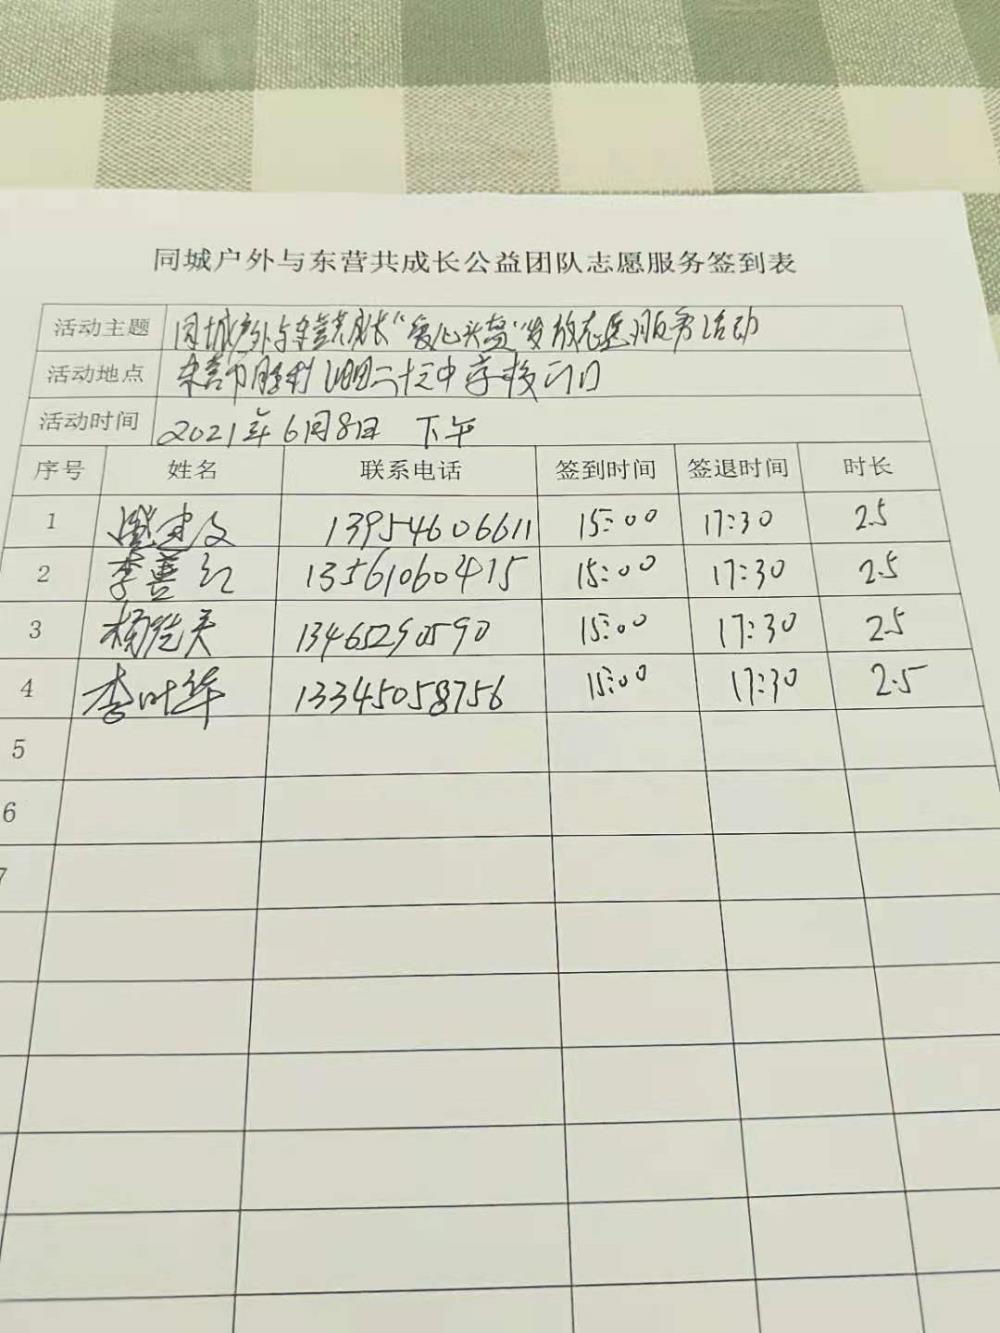 同城户外与东营共成长公益团队志愿服务签到表
活动主题 同城户外与东营共成长“爱心头盔”发放志愿服务活动
活动地点 东营市胜利 二十 中学校门口
活动时间 2021年6月8日 下午
序号 姓名 联系电话 签到时间 签退时间 时长
1 建文 13954606611 15:00 17:30 2.5
2 李善红 13561060415 15:00 17:30 2.5
3 杨 13465290590 15:00 17:30 2.5
4 李叶华 13345058756 15:00 17:30 2.5
5
6
7